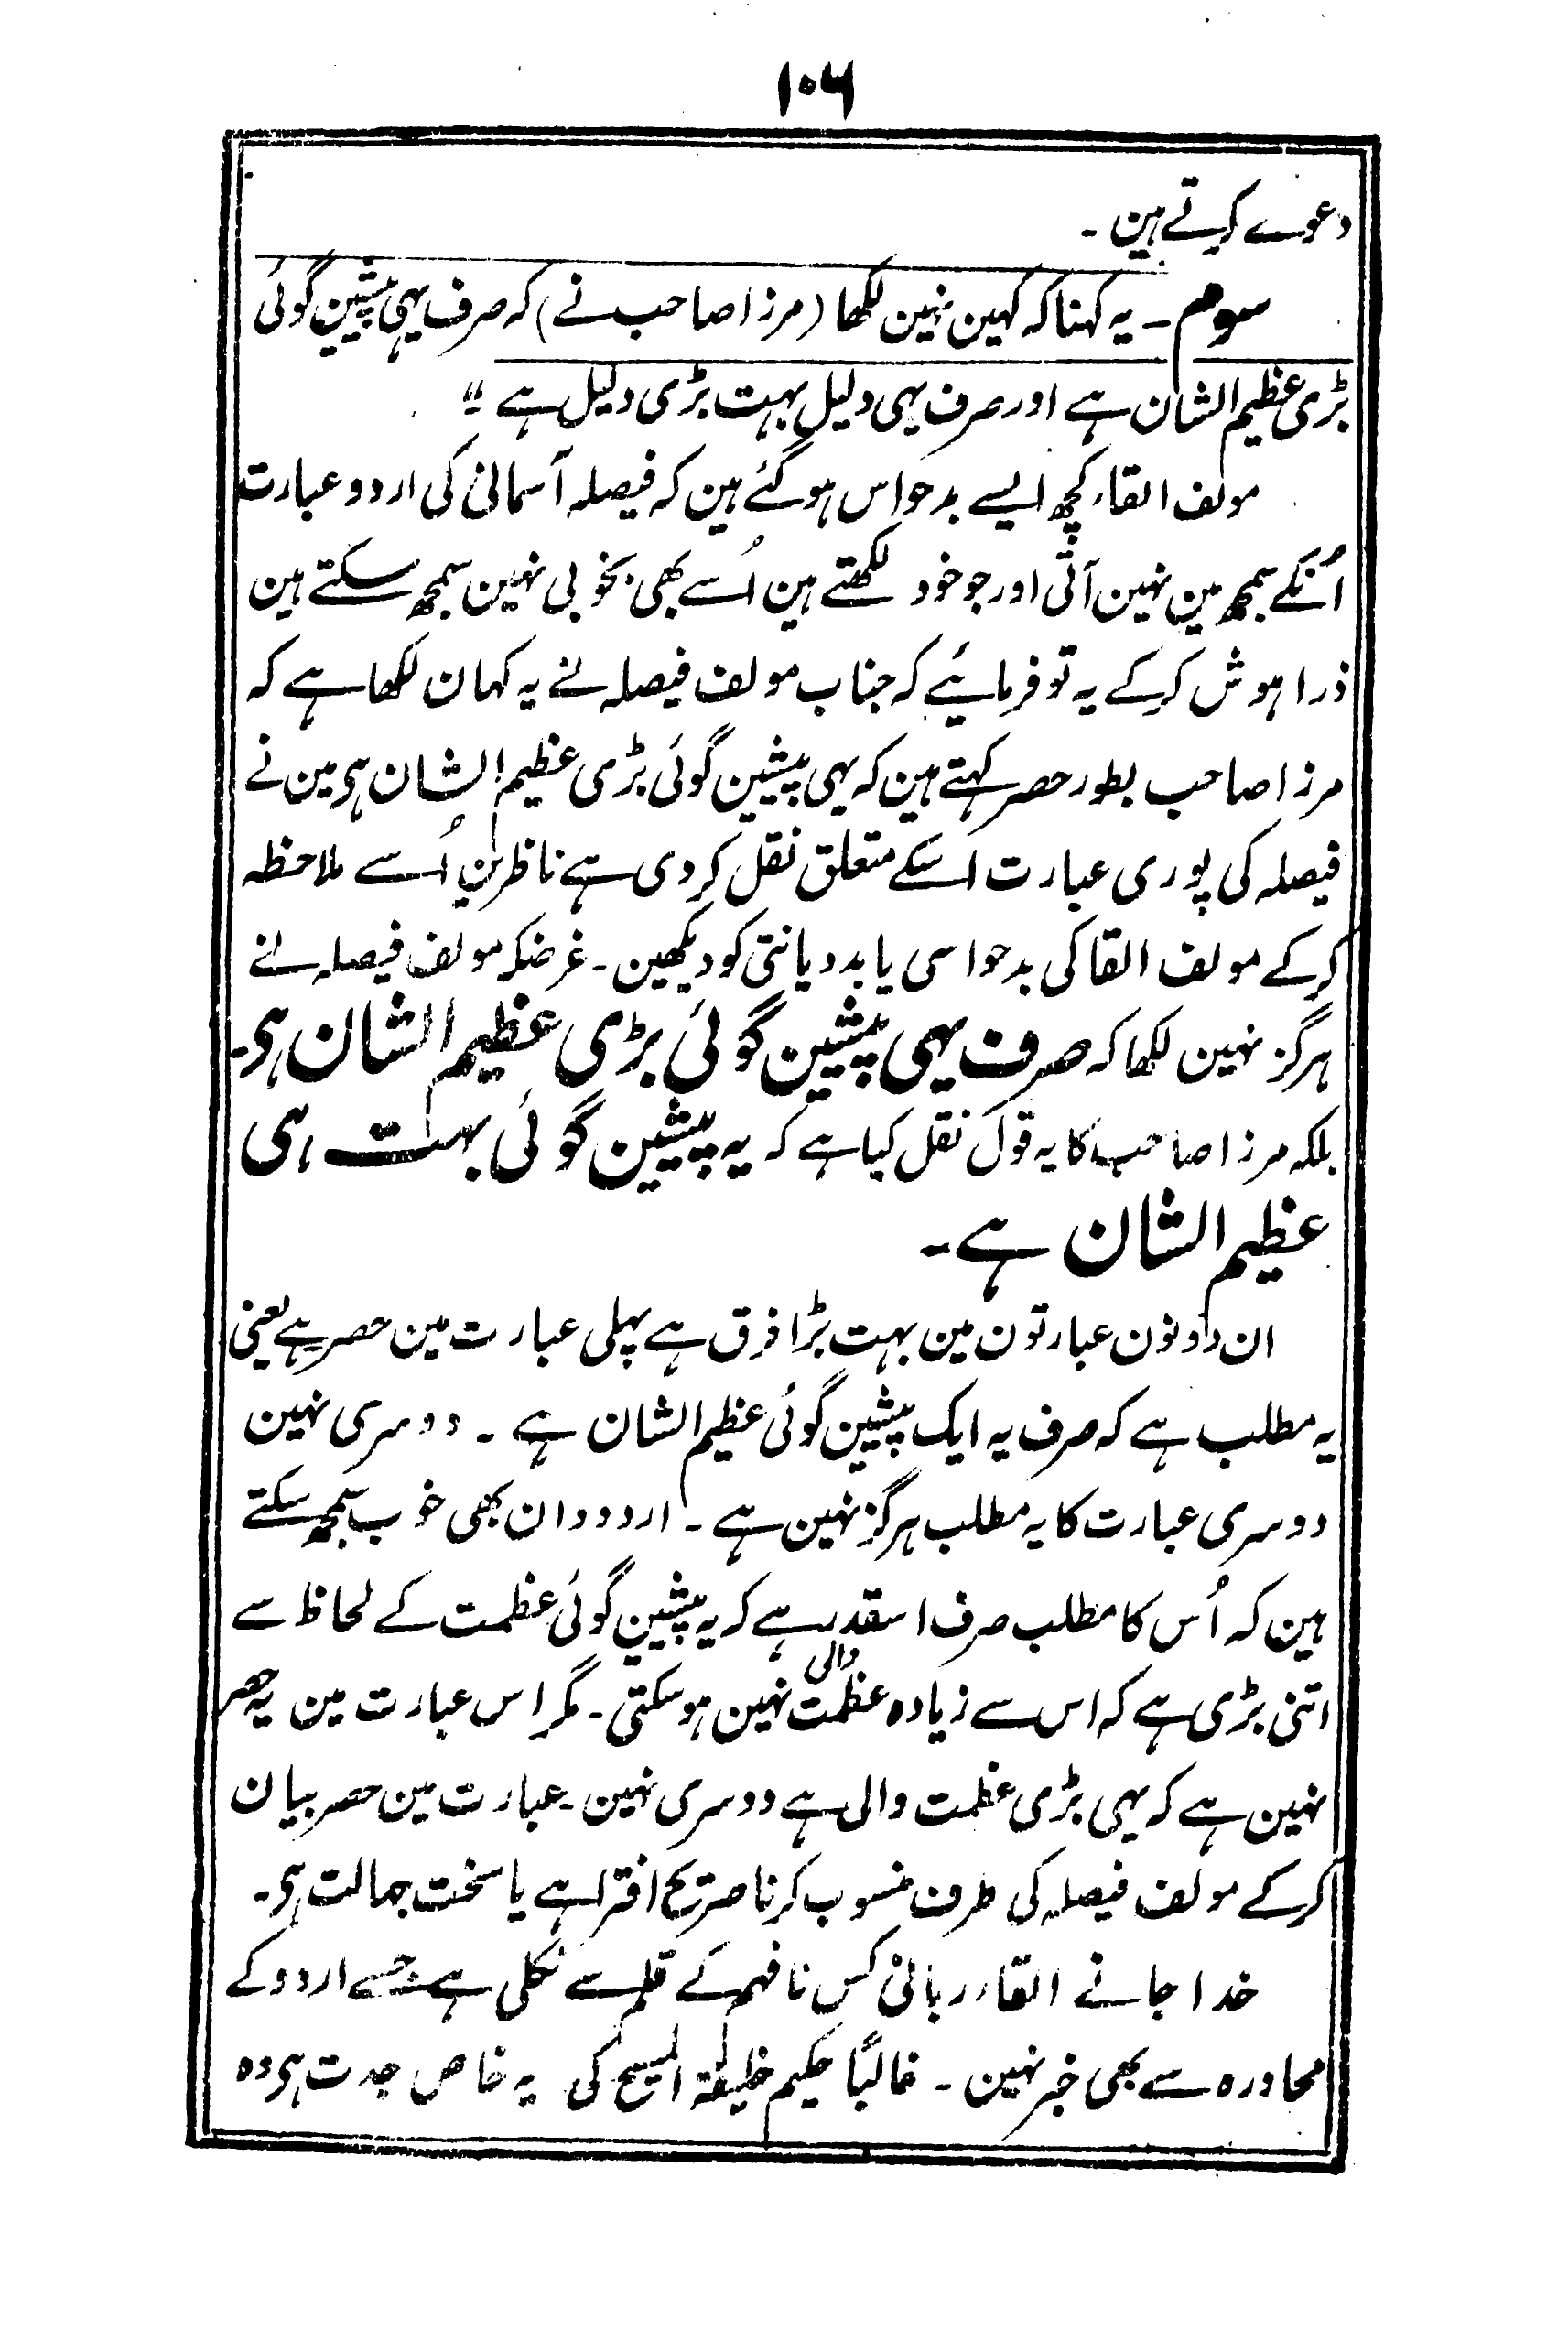 ۱۰۶
دعوے کرتے ہین ۔
سوم ۔ یہ کہنا کہ کہین نہین لکھا (مرزا صاحب نے) کہ صرف یہی پیشین گوئی
بڑی عظیم الشان ہے اور صرف یہی دلیل بہت بڑی دلیل ہے ‘‘
مولف القاء کچھ ایسے بدحواس ہو گئے ہین کہ فیصلہ آسمانی کی اردو عبارت
اُنکے سمجھ مین نہین آتی اور جو خود لکھتے ہین اُسے بھی بخوبی نہین سمجھ سکتے ہین
ذرا ہوش کرکے یہ تو فرمائیے کہ جناب مولف فیصلہ نے یہ کہان لکھا ہے کہ
مرزا صاحب بطور حصر کہتے ہین کہ یہی پیشین گوئی بڑی عظیم الشان ہی مین نے
فیصلہ کی پوری عبارت اسکے متعلق نقل کر دی ہے ناظرین اُسے ملاحظہ
کرکے مولف القا کی بدحواسی یا بددیانتی کو دیکھین ۔ غرضکہ مولف فیصلہ نے
ہرگز نہین لکھا کہ صرف یہی پیشین گوئی بڑی عظیم الشان ہی ۔
بلکہ مرزا صاحب کا یہ قول نقل کیا ہے کہ یہ پیشین گوئی بہت ہی
عظیم الشان ہے ۔
ان دونون عبارتون مین بہت بڑا فرق ہے پہلی عبارت مین حصر ہے یعنی
یہ مطلب ہے کہ صرف یہ ایک پیشین گوئی عظیم الشان ہے ۔ دوسری نہین
دوسری عبارت کا یہ مطلب ہرگز نہین ہے ۔ اردو دان بھی خوب سمجھ سکتے
ہین کہ اُس کا مطلب صرف اسقدر ہے کہ یہ پیشین گوئی عظمت کے لحاظ سے
اتنی بڑی ہے کہ اس سے زیادہ عظمت والی نہین ہو سکتی ۔ مگر اس عبارت مین یہ حصر
نہین ہے کہ یہی بڑی عظمت والی ہے دوسری نہین ۔ عبارت مین حصر بیان
کرکے مولف فیصلہ کی طرف منسوب کرنا صریح افترا ہے یا سخت جہالت ہی ۔
خدا جانے القاء ربانی کس نافہم کے قلم سے نکلی ہے جسے اردو کے
محاورہ سے بھی خبر نہین ۔ غالبًا حکیم خلیفۃ المسیح کی یہ خاص جدت ہی وہ